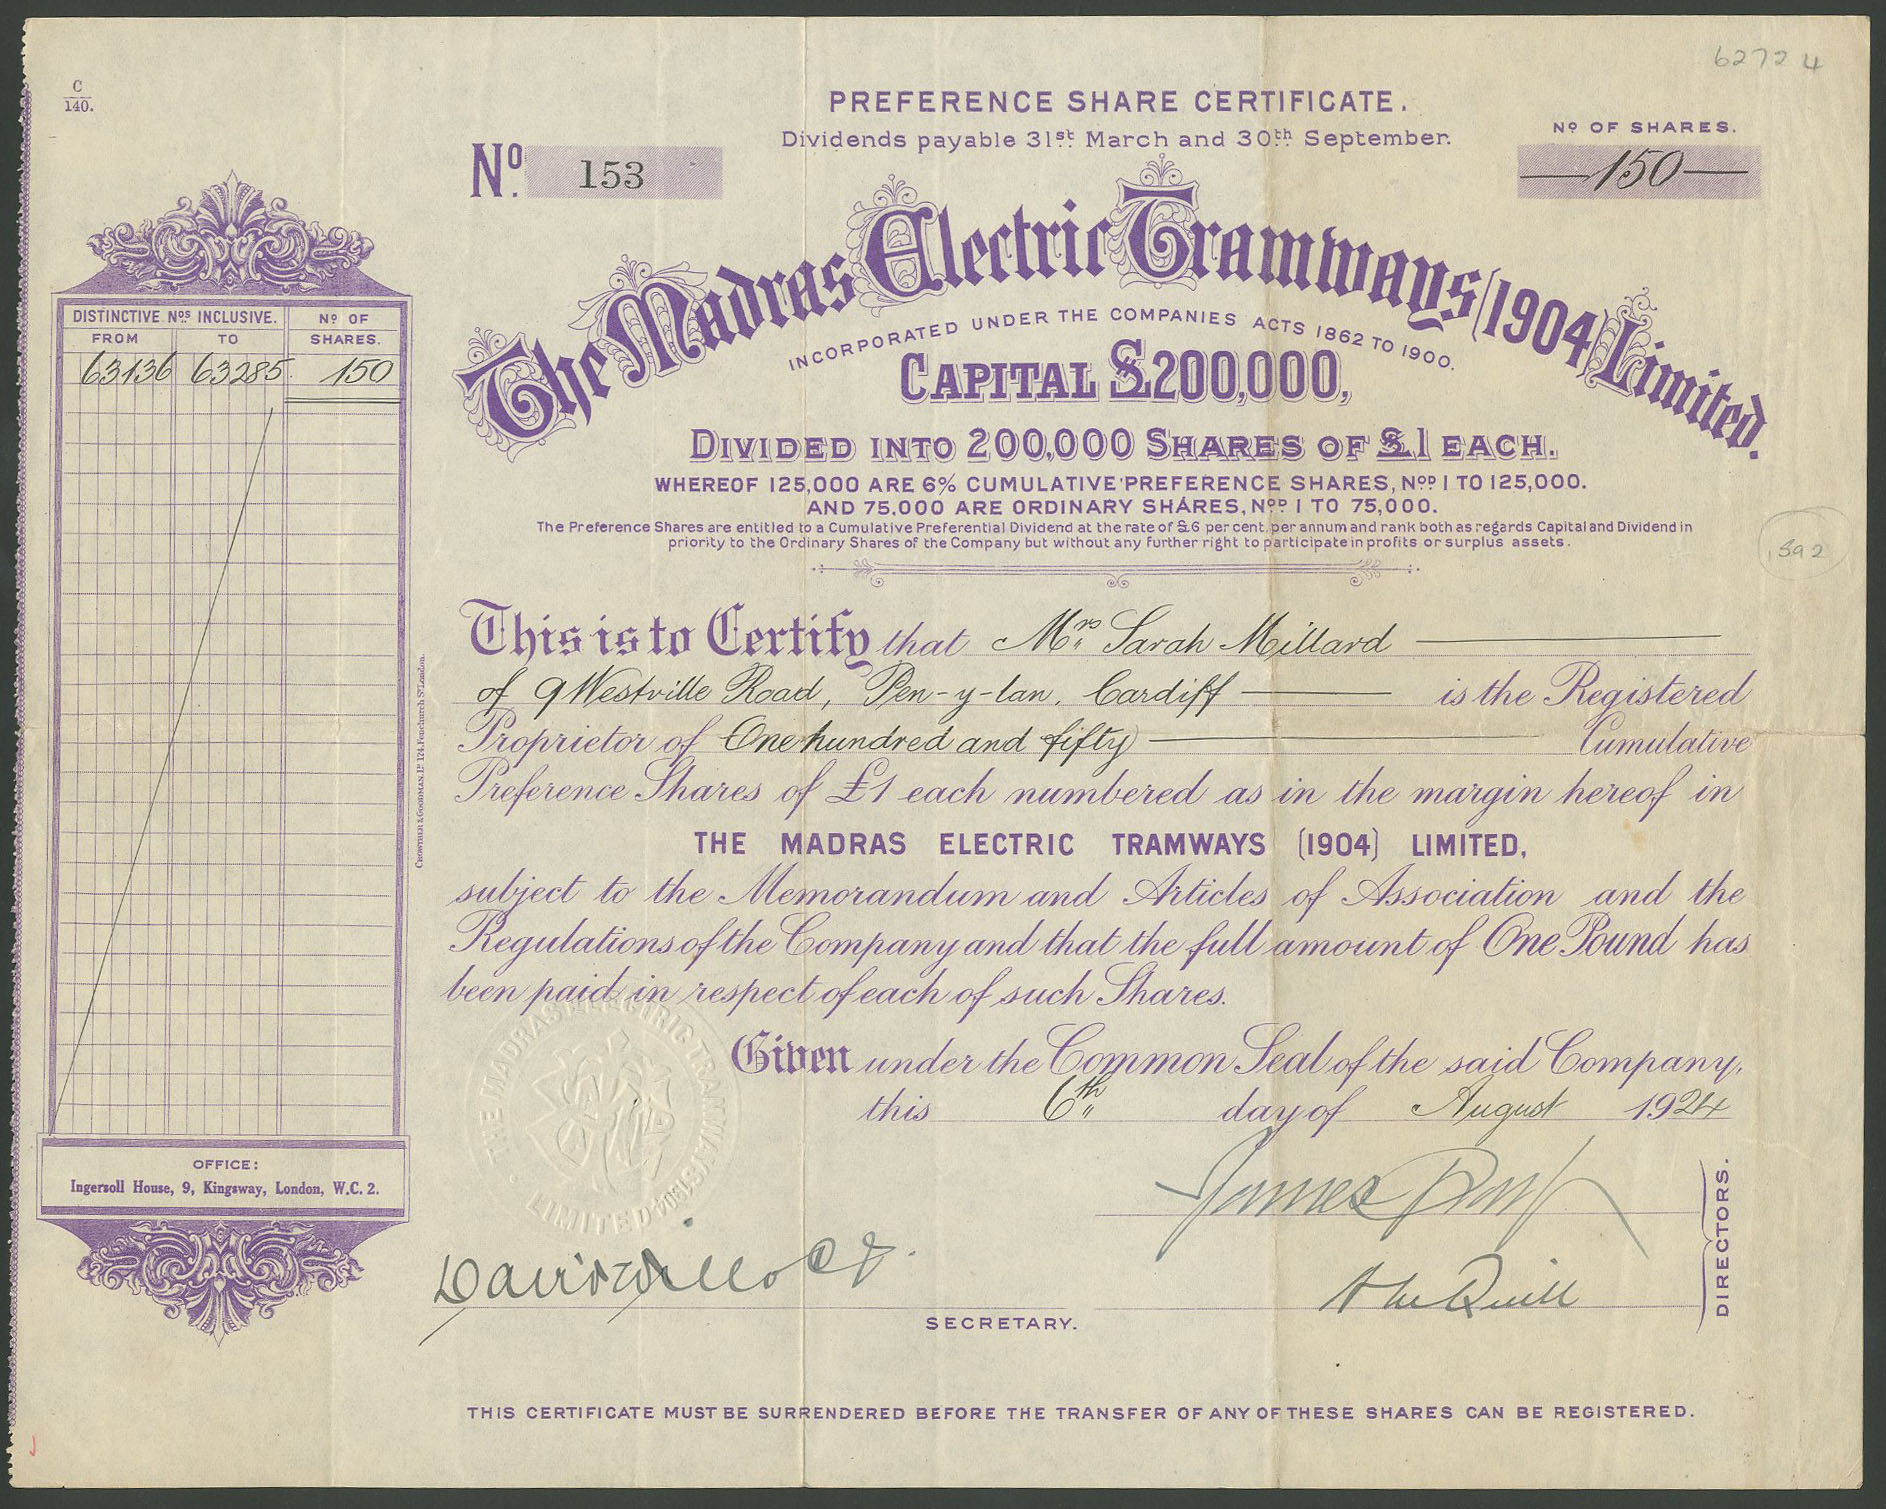 62724
C
140.
PREFERENCE SHARE CERTIFICATE.
Dividends payable 31st March and 30th September.
No. 153
No OF SHARES.
150
The Madras Electric Tramways (1904) Limited.
INCORPORATED UNDER THE COMPANIES ACTS 1862 TO 1900.
CAPITAL £200,000,
DIVIDED INTO 200,000 SHARES OF £1 EACH.
WHEREOF 125,000 ARE 6% CUMULATIVE PREFERENCE SHARES, Nos 1 TO 125,000.
AND 75.000 ARE ORDINARY SHARES, Nos 1 TO 75,000.
The Preference Shares are entitled to a Cumulative Preferential Dividend at the rate of £6 per cent. per annum and rank both as regards Capital and Dividend in
priority to the Ordinary Shares of the Company but without any further right to participate in profits or surplus assets.
592
DISTINCTIVE Nos INCLUSIVE. No OF
FROM TO SHARES.
63136 63285 150
This is to Certify that Mrs Sarah Millard
of 9 Westville Road, Pen-y-lan. Cardiff is the Registered
Proprietor of One hundred and fifty Cumulative
Preference Shares of £1 each numbered as in the margin hereof in
THE MADRAS ELECTRIC TRAMWAYS (1904) LIMITED,
subject to the Memorandum and Articles of Association and the
Regulations of the Company and that the full amount of One Pound has
been paid in respect of each of such Shares.
Given under the Common Seal of the said Company,
this 6th day of August 1924
THE MADRAS ELECTRIC TRAMWAYS (1904)
LIMITED
CROWTHER & GOODMAN, Ld 124, Fenchurch St London.
OFFICE:
Ingersoll House, 9, Kingsway, London, W.C. 2.
James
DIRECTORS.
SECRETARY.
THIS CERTIFICATE MUST BE SURRENDERED BEFORE THE TRANSFER OF ANY OF THESE SHARES CAN BE REGISTERED.